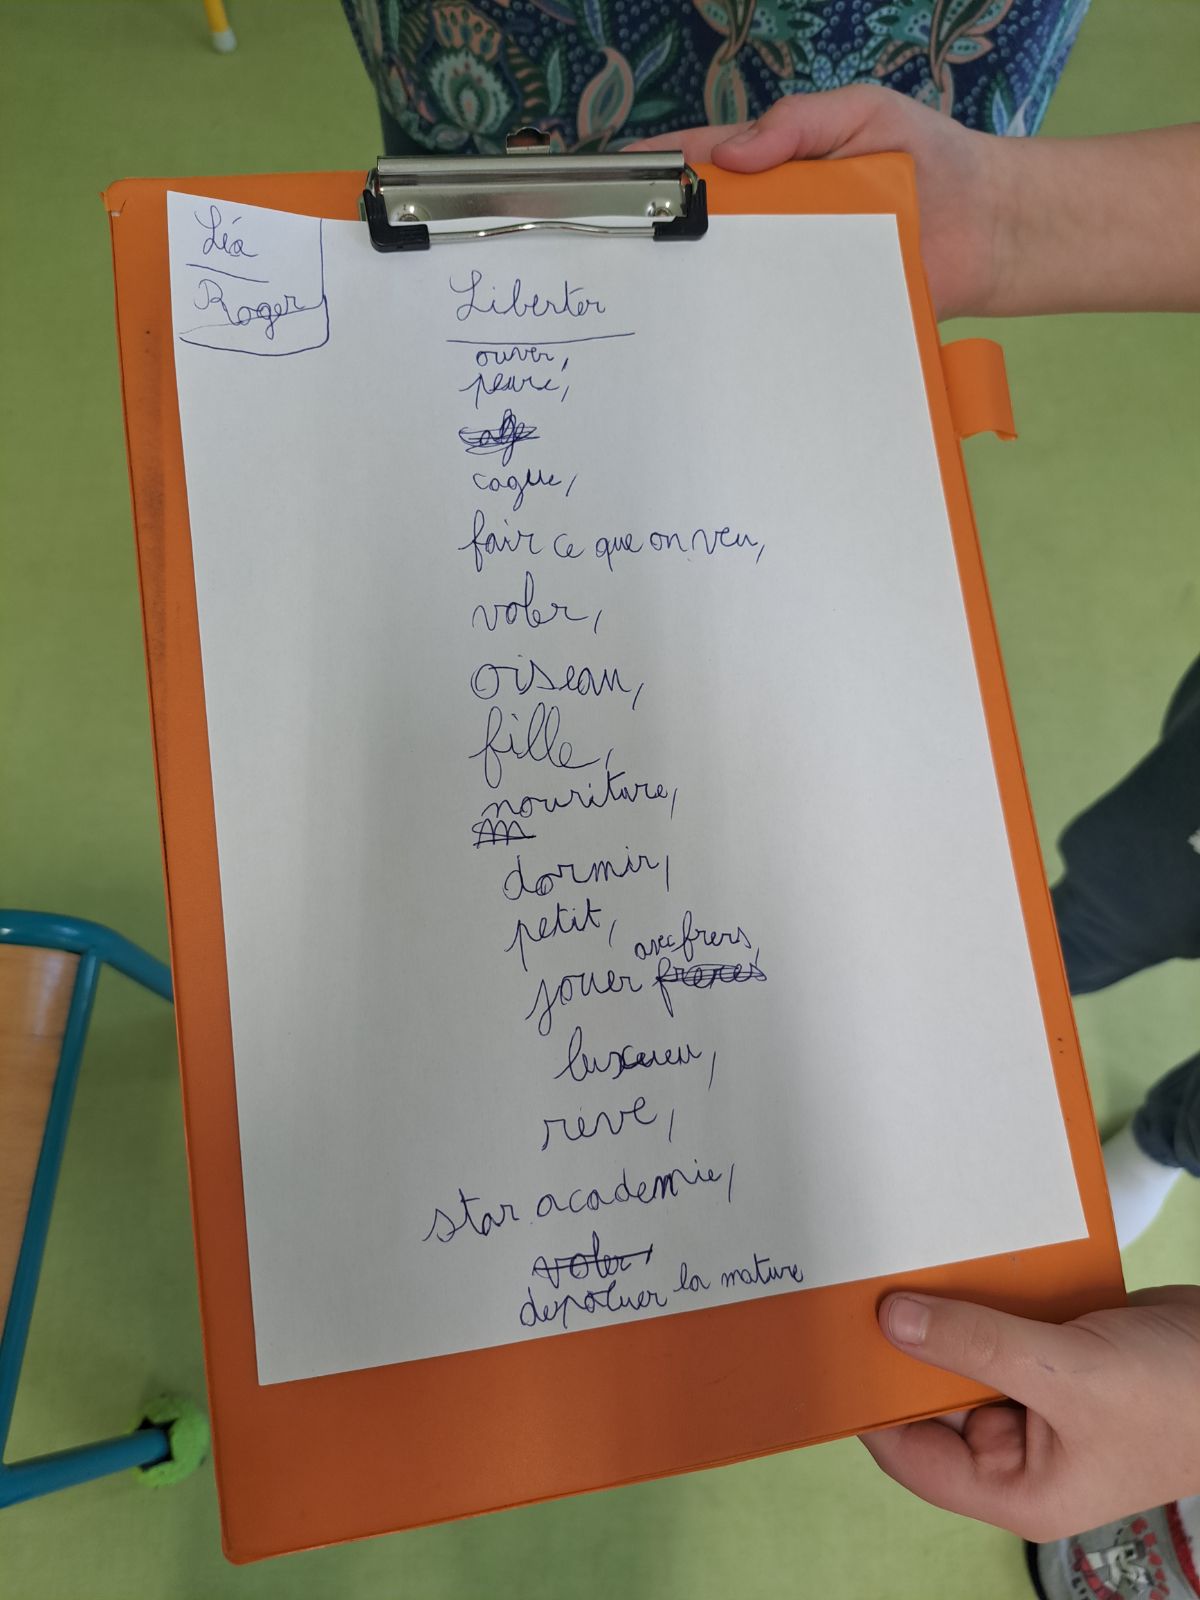 Léa
Roger
Liberter
ouver,
peure,
cague,
fair ce que on veu,
voler,
oiseau,
fille,
nouriture,
dormir,
petit,
avec frers,
jouer freres
luxueu,
rève,
star academie,
voler,
depoluer la nature